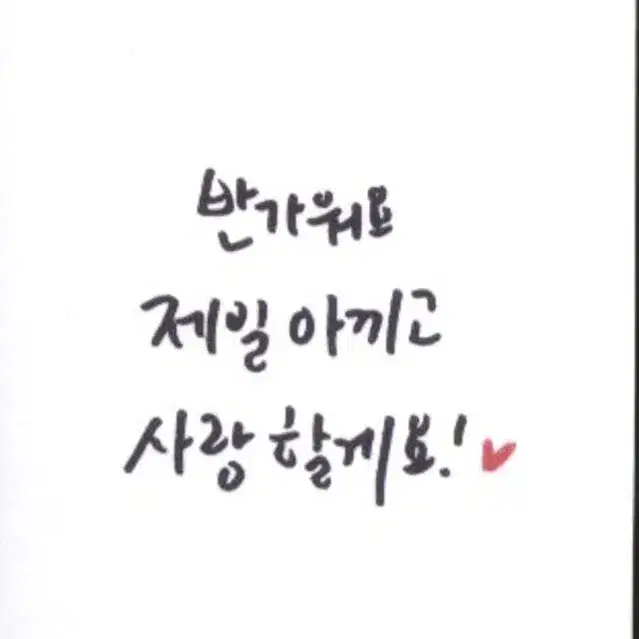 반가워요
제일 아끼고
사랑할게요! ♥